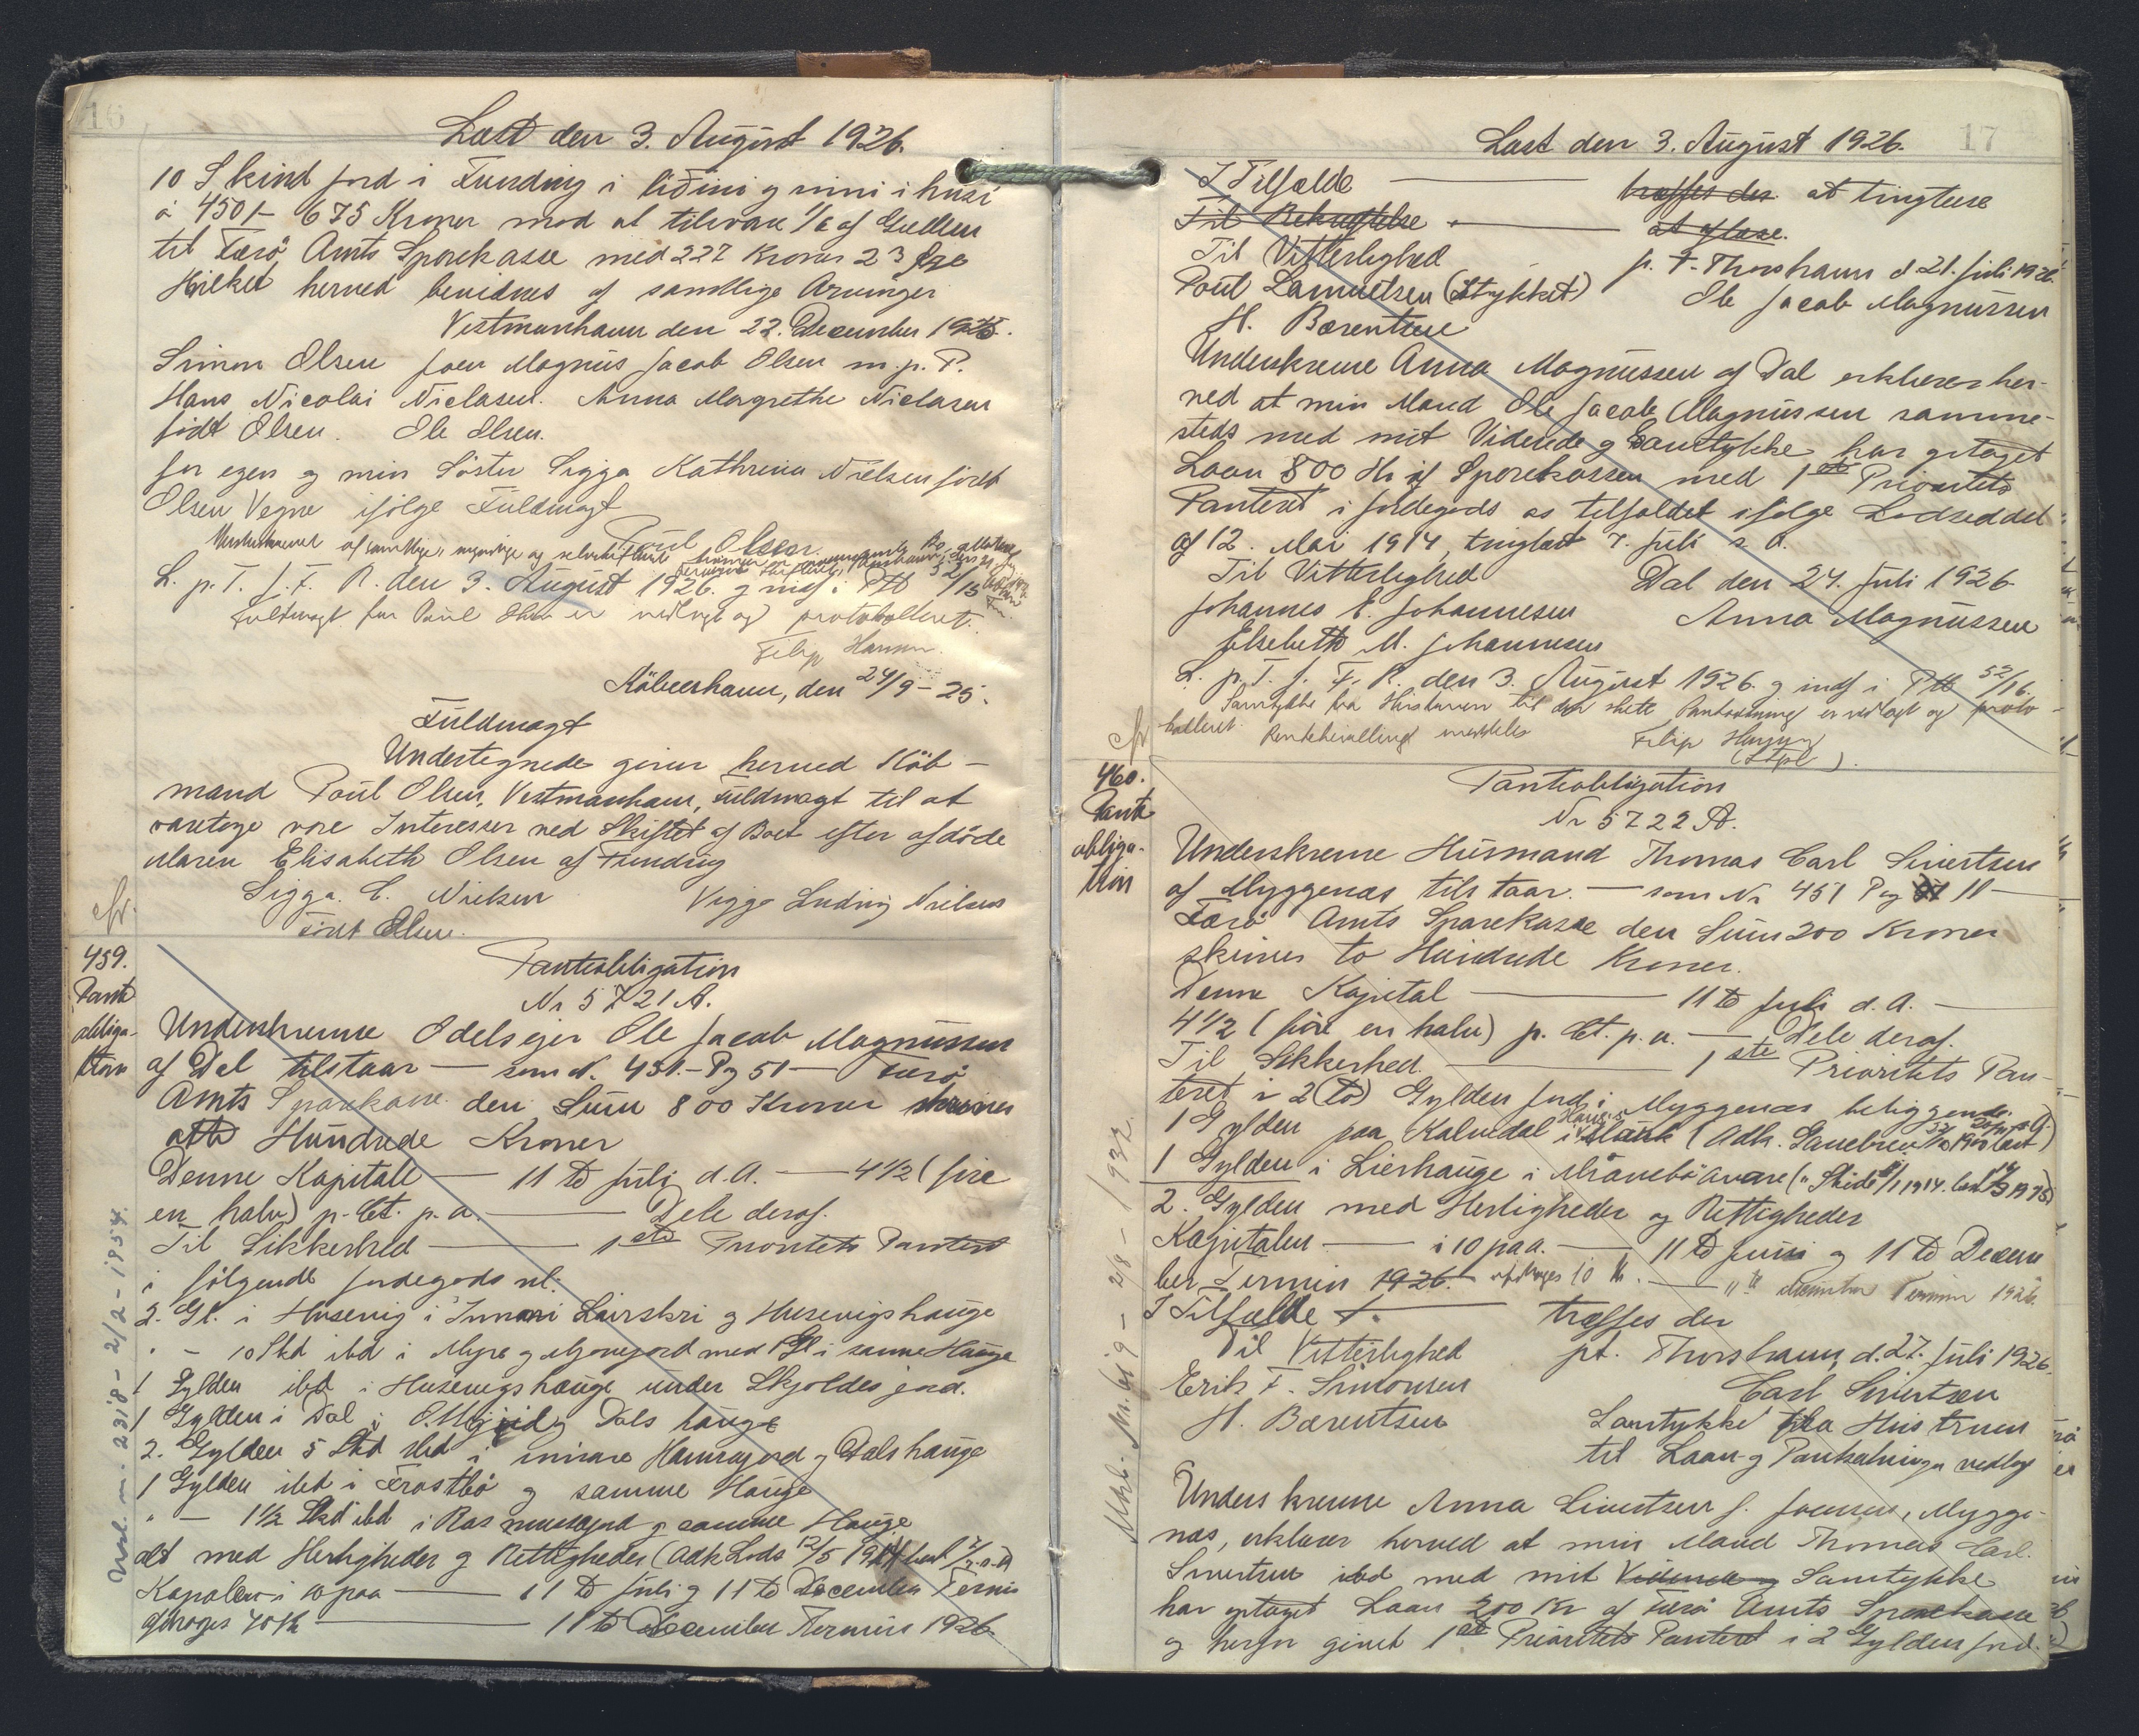 16
Læst den 3. August 1926.
10 Skind Jord i Funding i liðini og inni i húsi
á 450/- 675 Kroner mod at tilsvare 1/6 af Gielden
til Færø Amts Sparekasse med 227 Kroner 23 Øre
Hvilket herved bevidnes af samtlige Arvinger
Vestmanhavn den 22. December 1925.
Simon Olsen Joen Magnus Jacob Olsen m.p.P.
Hans Nicolai Niclasen. Anna Margrethe Niclasen
født Olsen. Ole Olsen.
for egen og min Søster Sigga Kathrina Nielsen født
Olsen Vegne ifølge Fuldmagt
Poul Olsen.
L. p. T. f. F. R. den 3. August 1926. og indf i Ptb 52/15
Fuldmagt for Poul Olsen er vedlagt og protokolleret.
Filip Hansen.
Köbenhavn, den 24/9-25.
Fuldmagt
Undertegnede giver herved Köb-
mand Poul Olsen, Vestmanhavn, Fuldmagt til at
varetage vore Interesser ved Skiftet af Boet efter afdöde
Maren Elisabeth Olsen af Funding
Sigga. C. Nielsen Viggo Ludvig Nielsen
födt Olsen.
459.
Pant
obliga-
tion
Pantobligation
Nr 5721 A.
Underskrevne Odelsejer Ole Jacob Magnussen
af Dal tilstaar — som N. 451.-Pag 51 — Færø
Amts Sparekasse den Sum 800 Kroner skriver
otte Hundrede Kroner
Denne Kapital — 11 te Juli d.A. — 4 1/2 (fire
en halv) p. Ct. p. a. — Dele deraf.
Til Sikkerhed — 1ste Prioritets Panteret
i følgende Jordegods nl:
2. Gl. i Husevig i Innari Leirskri og Husevigs hauge
" - 10 Skd ibd i Myre og Mjovejord med 1 Gl i samme Hauge
1 Gylden ibd i Husevigs hauge under Skjoldes jord.
1 Gylden i Dal i Dals hauge
2. Gylden 5 Skd ibd i innare Hamrajord og Dals hauge
1 Gylden ibd i Frostbö og samme Hauge
" - 1 1/2 Skd ibd i Rasmussajord og samme Hauge
alt med Herligheder og Rettigheder (Adk Lods 12/5 1914 læst 7/7 s.A)
Kapitalen i 10 paa — 11 te Juli og 11 te December Termin
afdrages 40 Kr — 11 te December Termin 1926.
2318 - 2/2 - 1954.
17
Læst den 3. August 1926.
I Tilfælde — træffes der. at tinglæse
Til Bekræftelse — at aflæse.
Til Vitterlighed p. T. Thorshavn d 21. Juli 1926.
Poul Samuelsen (Stykket) Ole Jacob Magnussen
H. Bærentsen
Underskrevne Anna Magnussen af Dal erklærer her-
ved at min Mand Ole Jacob Magnussen samme-
steds med mit Vidende og Samtykke har optaget
Laan 800 Kr af Sparekassen med 1ste Prioritets
Panteret i Jordegods as tilfaldet ifølge Lodseddel
af 12. Mai 1914, tinglæst 7. Juli s. A.
Til Vitterlighed Dal den 24. Juli 1926.
Johannes E. Johannesen Anna Magnussen
Elsebeth M. Johannesen
L. p. T. f. F. R. den 3. August 1926. og indf i Ptb 52/16.
Samtykke fra Hustruen til den skete Pantsætning er vedlagt og proto-
kolleret. Rentebevilling meddeles
Filip Hansen
(Stpl).
460.
Pant
obliga-
tion
Pantobligation
Nr 5722 A.
Underskrevne Husmand Thomas Carl Sivertsen
af Myggenæs tilstaar. — som Nr 451 Pag 11 —
Færø Amts Sparekasse den Sum 200 Kroner
skriver to Hundrede Kroner.
Denne Kapital — 11 te Juli d. A. —
4 1/2 (fire en halv) p. Ct. p. a. — Dele deraf.
Til Sikkerhed. — 1 ste Prioritets Pan-
teret i 2 (to) Gylden Jord i Myggenæs beliggende.
1 Gylden paa Kalvedal i Mark (Adk. Gavebrev læst)
1 Gylden i Lierhauge i Mranebö avare (" Skide 8/1 1914. læst)
2. Gylden med Herligheder og Rettigheder
Kapitalen — i 10 paa. — 11 te Juni og 11 te Decem
ber Termin 1926. afdrages 10 Kr. — 11 te December Termin 1926.
I Tilfælde — træffes der
Til Vitterlighed pt. Thorshavn, d. 27. Juli 1926.
Erik F. Simonsen Carl Sivertsen
H. Bærentsen Samtykke fra Hustruen
til Laan og Pantsætningen vedlagt
Underskrevne Anna Sivertsen f. Joensen, Mygge-
næs, erklærer herved at min Mand Thomas Carl.
Sivertsen ibd med mit Vidende og Samtykke
har optaget Laan 200 Kr af Færø Amts Sparekasse
og herfor givet 1ste Prioritets Panteret i 2 Gylden Jord.
Nr. 619 - 28 - 1932.